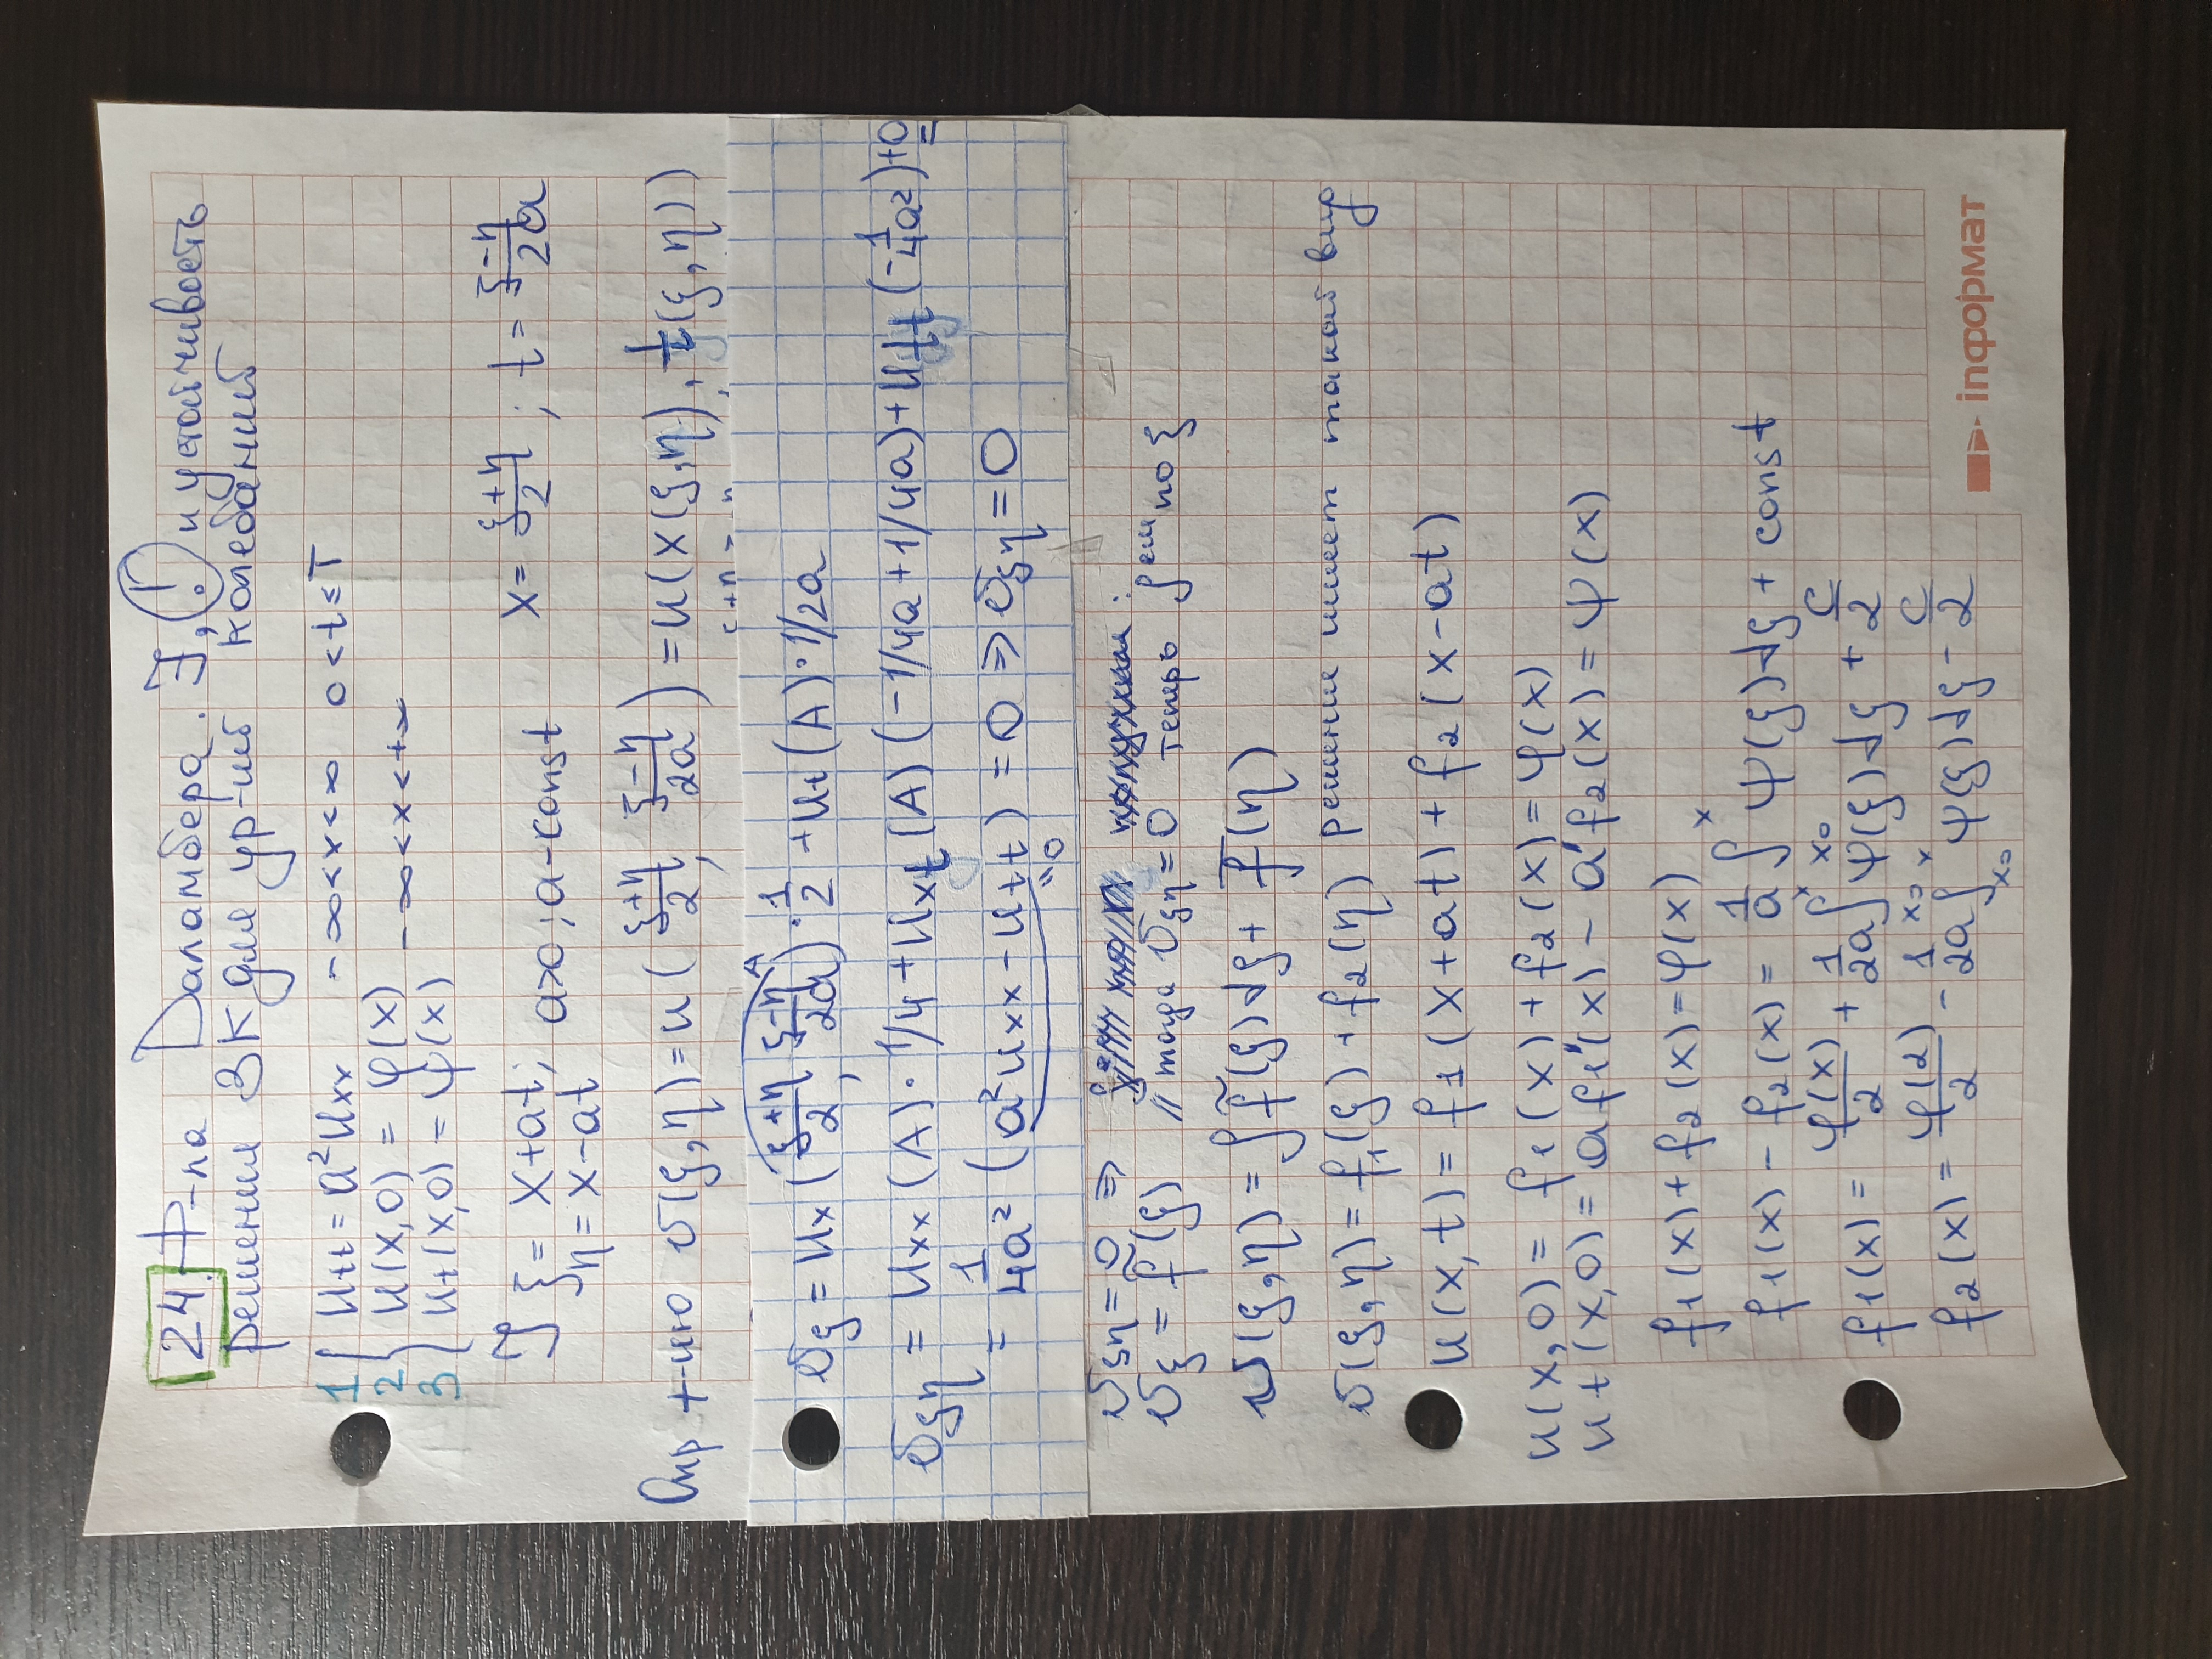 24. Ф-ла Даламбера. ∃, (!) и устойчивость
решения ЗК для ур-ий колебаний
1 { Utt = a²Uxx   -∞<x<∞   0<t≤T
2 { U(x,0) = φ(x)   -∞<x<+∞
3 { Ut(x,0) = ψ(x)
∃ ξ = x+at; a>0; a-const   x = (ξ+η)/2 ; t = (ξ-η)/2a
η = x-at
Опр ф-ию v(ξ,η) = u((ξ+η)/2, (ξ-η)/2a) = u(x(ξ,η), t(ξ,η))
vξ = Ux((ξ+η)/2, (ξ-η)/2a)·1/2 + Ut(A)·1/2a
A
vξη = Uxx(A)·1/4 + Uxt(A)(-1/4a + 1/4a) + Utt(-1/4a²) + 0 =
= 1/4a² (a²Uxx - Utt) = 0 => vξη = 0
"0
vξη = 0 =>
vξ = f̃(ξ)   // тогда vξη = 0 теперь ∫ем по ξ
v(ξ,η) = ∫f̃(ξ)dξ + f̄(η)
v(ξ,η) = f1(ξ) + f2(η)   решение имеет такой вид
u(x,t) = f1(x+at) + f2(x-at)
u(x,0) = f1(x) + f2(x) = φ(x)
ut(x,0) = af1'(x) - af2'(x) = ψ(x)
f1(x) + f2(x) = φ(x)
f1(x) - f2(x) = 1/a ∫x0^x ψ(ξ)dξ + const
f1(x) = φ(x)/2 + 1/2a ∫x0^x ψ(ξ)dξ + C/2
f2(x) = φ(2)/2 - 1/2a ∫x0^x ψ(ξ)dξ - C/2
inформат